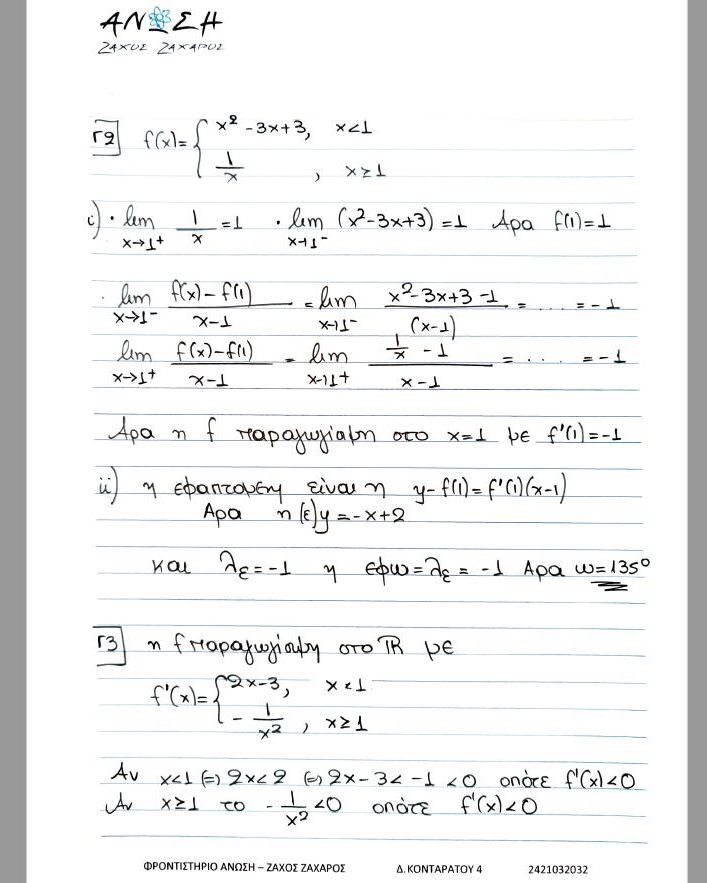 ΑΝΩΣΗ
ΖΑΧΟΣ ΖΑΧΑΡΟΣ
Γ2 f(x)= { x² -3x+3, x<1
1/x , x≥1
i) · lim x→1⁺ 1/x =1 · lim x→1⁻ (x²-3x+3)=1 Άρα f(1)=1
· lim x→1⁻ (f(x)-f(1))/(x-1) = lim x→1⁻ (x²-3x+3-1)/(x-1) = .... = -1
lim x→1⁺ (f(x)-f(1))/(x-1) = lim x→1⁺ (1/x -1)/(x-1) = .... = -1
Άρα η f παραγωγίσιμη στο x=1 με f'(1)=-1
ii) η εφαπτομένη είναι η y-f(1)=f'(1)(x-1)
Άρα η (ε) y=-x+2
και λε=-1 ή εφω=λε=-1 Άρα ω=135°
Γ3 η f παραγωγίσιμη στο ℝ με
f'(x)= { 2x-3, x<1
- 1/x² , x≥1
Αν x<1 (=) 2x<2 (=) 2x-3<-1<0 οπότε f'(x)<0
Αν x≥1 το - 1/x² <0 οπότε f'(x)<0
ΦΡΟΝΤΙΣΤΗΡΙΟ ΑΝΩΣΗ – ΖΑΧΟΣ ΖΑΧΑΡΟΣ Δ. ΚΟΝΤΑΡΑΤΟΥ 4 2421032032